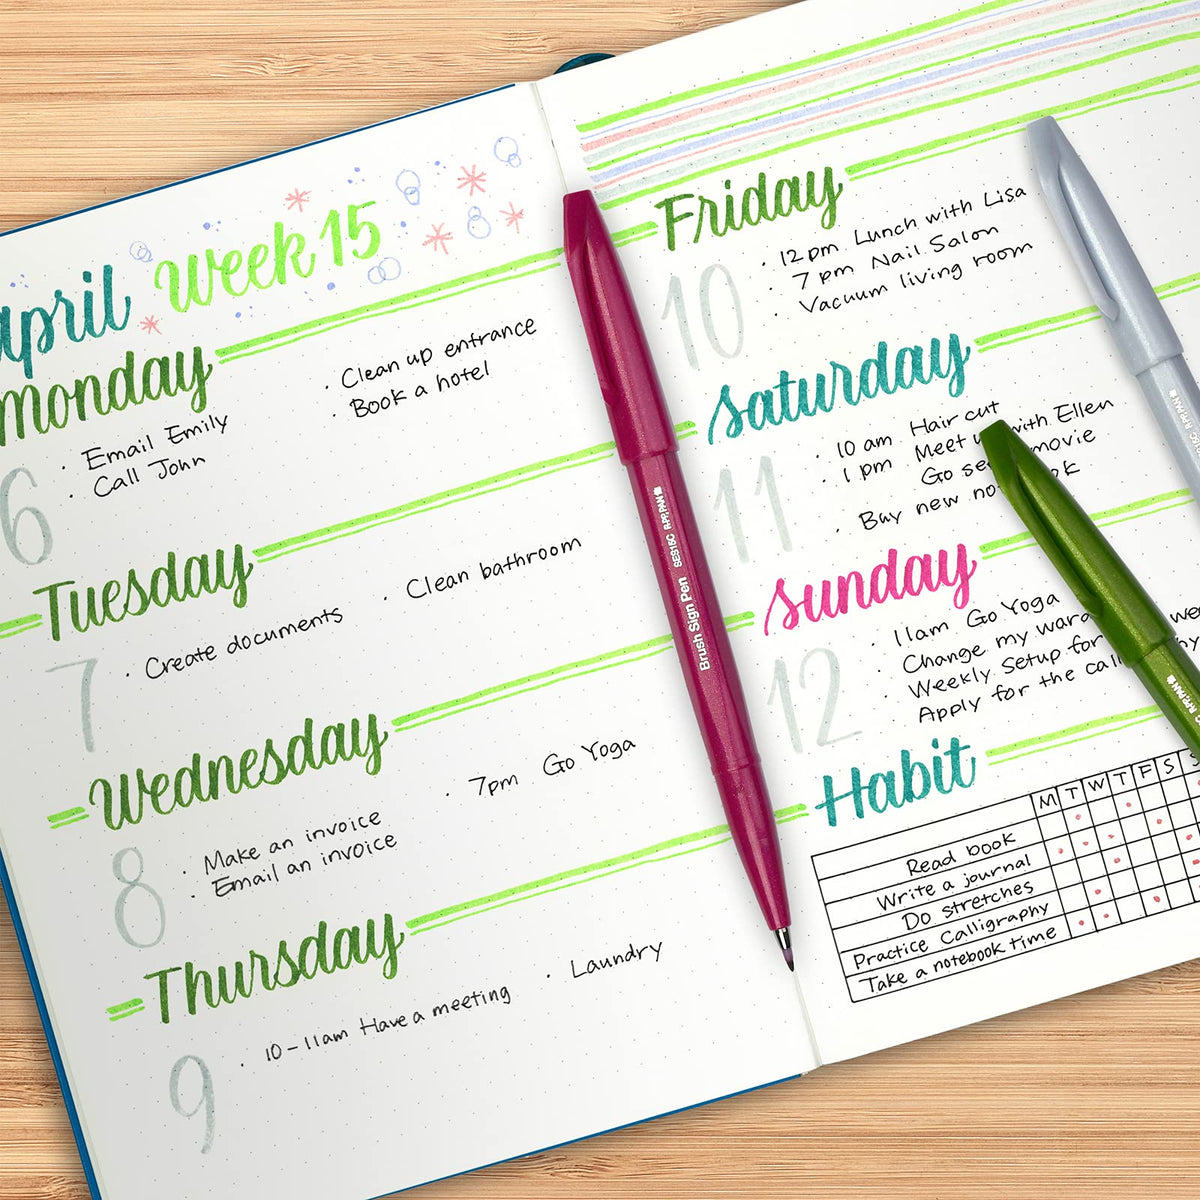 April Week 15
Monday
6
· Email Emily
· Call John
· Clean up entrance
· Book a hotel
Tuesday
7
· Create documents
· Clean bathroom
Wednesday
8
· Make an invoice
· Email an invoice
· 7pm Go Yoga
Thursday
9
· 10-11am Have a meeting
· Laundry
Friday
10
· 12pm Lunch with Lisa
7pm Nail Salon
· Vacuum living room
Saturday
11
· 10 am Hair cut
· 1 pm Meet with Ellen
Go movie
· Buy new
Sunday
12
· 11am Go Yoga
· Change my
· Weekly Setup for
· Apply for the
Habit
M T W T F S S
Read book
Write a journal
Do stretches
Practice Calligraphy
Take a notebook time
Brush Sign Pen SES15C AP.P.PAN